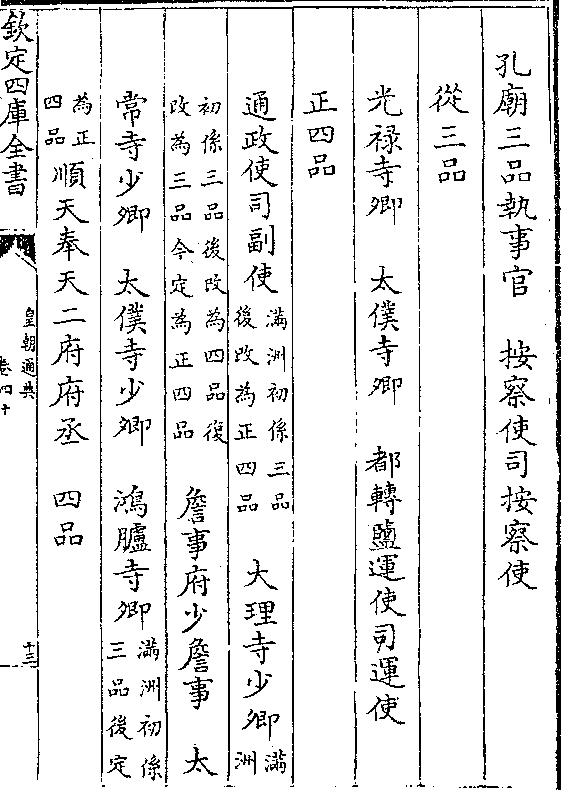 孔廟三品執事官　按察使司按察使
從三品
光禄寺卿　太僕寺卿　都轉鹽運使司運使
正四品
通政使司副使滿洲初係三品後改為正四品　大理寺少卿滿洲
初係三品後改為四品復改為三品今定為正四品　詹事府少詹事　太
常寺少卿　太僕寺少卿　鴻臚寺卿滿洲初係三品後定
為正四品順天奉天二府府丞　四品
欽定四庫全書
皇朝通典
卷四十
十三